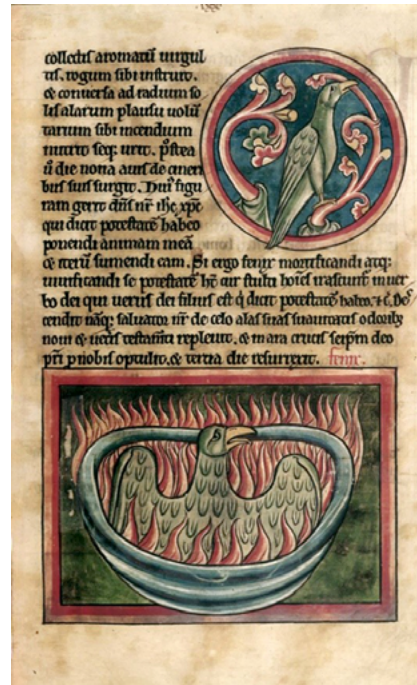 collectis aromatū uirgul
tis. rogum sibi instruit.
& conuersa ad radium so
lis alarum plausu uolū
tarium sibi incendium
nutrit seq; urit. postea
ū die nona auis de cineri
bus suis surgit. Huiꝰ figu
ram gerit dn̄s nr̄ ihc xp̄c
qui dicit potestatē habeo
ponendi animam meā
& iterū sumendi eam. Si ergo fenix mortificandi atq;
uiuificandi se potestatē h̄t cur stulti hoīes irascunt in uer
bo dei qui uerus dei filius est q̄ dicit potestatē habeo. Des
cendit nāq; saluator nr̄ de celo alas suas suauitatis odorib;
noui & ueteris testam̄ti repleuit. & in ara crucis seip̄m deo
pr̄i p nobis optulit. & tertia die resurrexit. fenix.